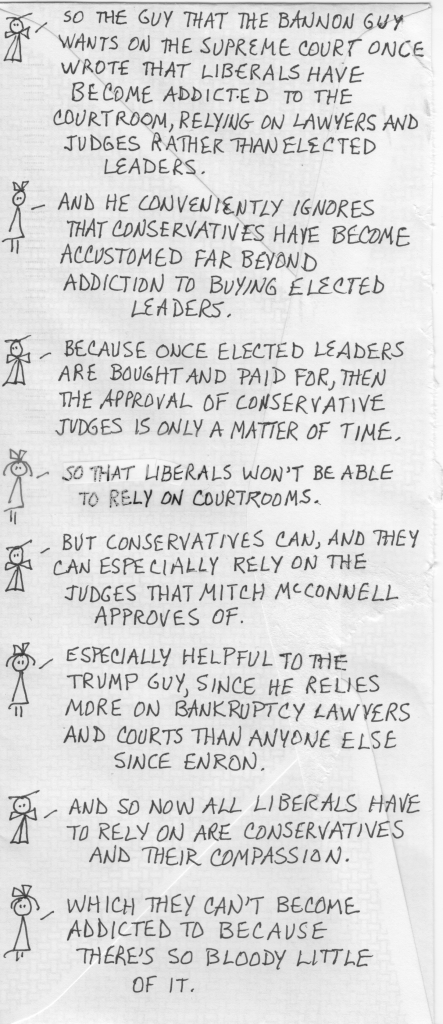 SO THE GUY THAT THE BANNON GUY
WANTS ON THE SUPREME COURT ONCE
WROTE THAT LIBERALS HAVE
BECOME ADDICTED TO THE
COURTROOM, RELYING ON LAWYERS AND
JUDGES RATHER THAN ELECTED
LEADERS.
AND HE CONVENIENTLY IGNORES
THAT CONSERVATIVES HAVE BECOME
ACCUSTOMED FAR BEYOND
ADDICTION TO BUYING ELECTED
LEADERS.
BECAUSE ONCE ELECTED LEADERS
ARE BOUGHT AND PAID FOR, THEN
THE APPROVAL OF CONSERVATIVE
JUDGES IS ONLY A MATTER OF TIME.
SO THAT LIBERALS WON'T BE ABLE
TO RELY ON COURTROOMS.
BUT CONSERVATIVES CAN, AND THEY
CAN ESPECIALLY RELY ON THE
JUDGES THAT MITCH McCONNELL
APPROVES OF.
ESPECIALLY HELPFUL TO THE
TRUMP GUY, SINCE HE RELIES
MORE ON BANKRUPTCY LAWYERS
AND COURTS THAN ANYONE ELSE
SINCE ENRON.
AND SO NOW ALL LIBERALS HAVE
TO RELY ON ARE CONSERVATIVES
AND THEIR COMPASSION.
WHICH THEY CAN'T BECOME
ADDICTED TO BECAUSE
THERE'S SO BLOODY LITTLE
OF IT.